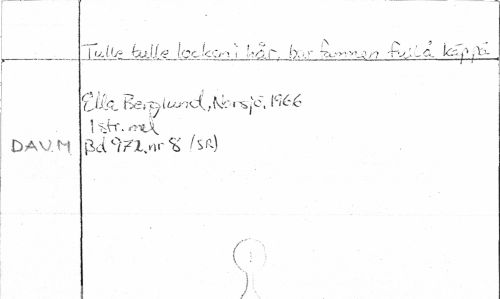 Tulle tulle locken i hår, bar famnen full å käppå
Ella Berglund, Norsjö, 1966
1 str. mel
DAUM Bd 972, nr 8 (SR)